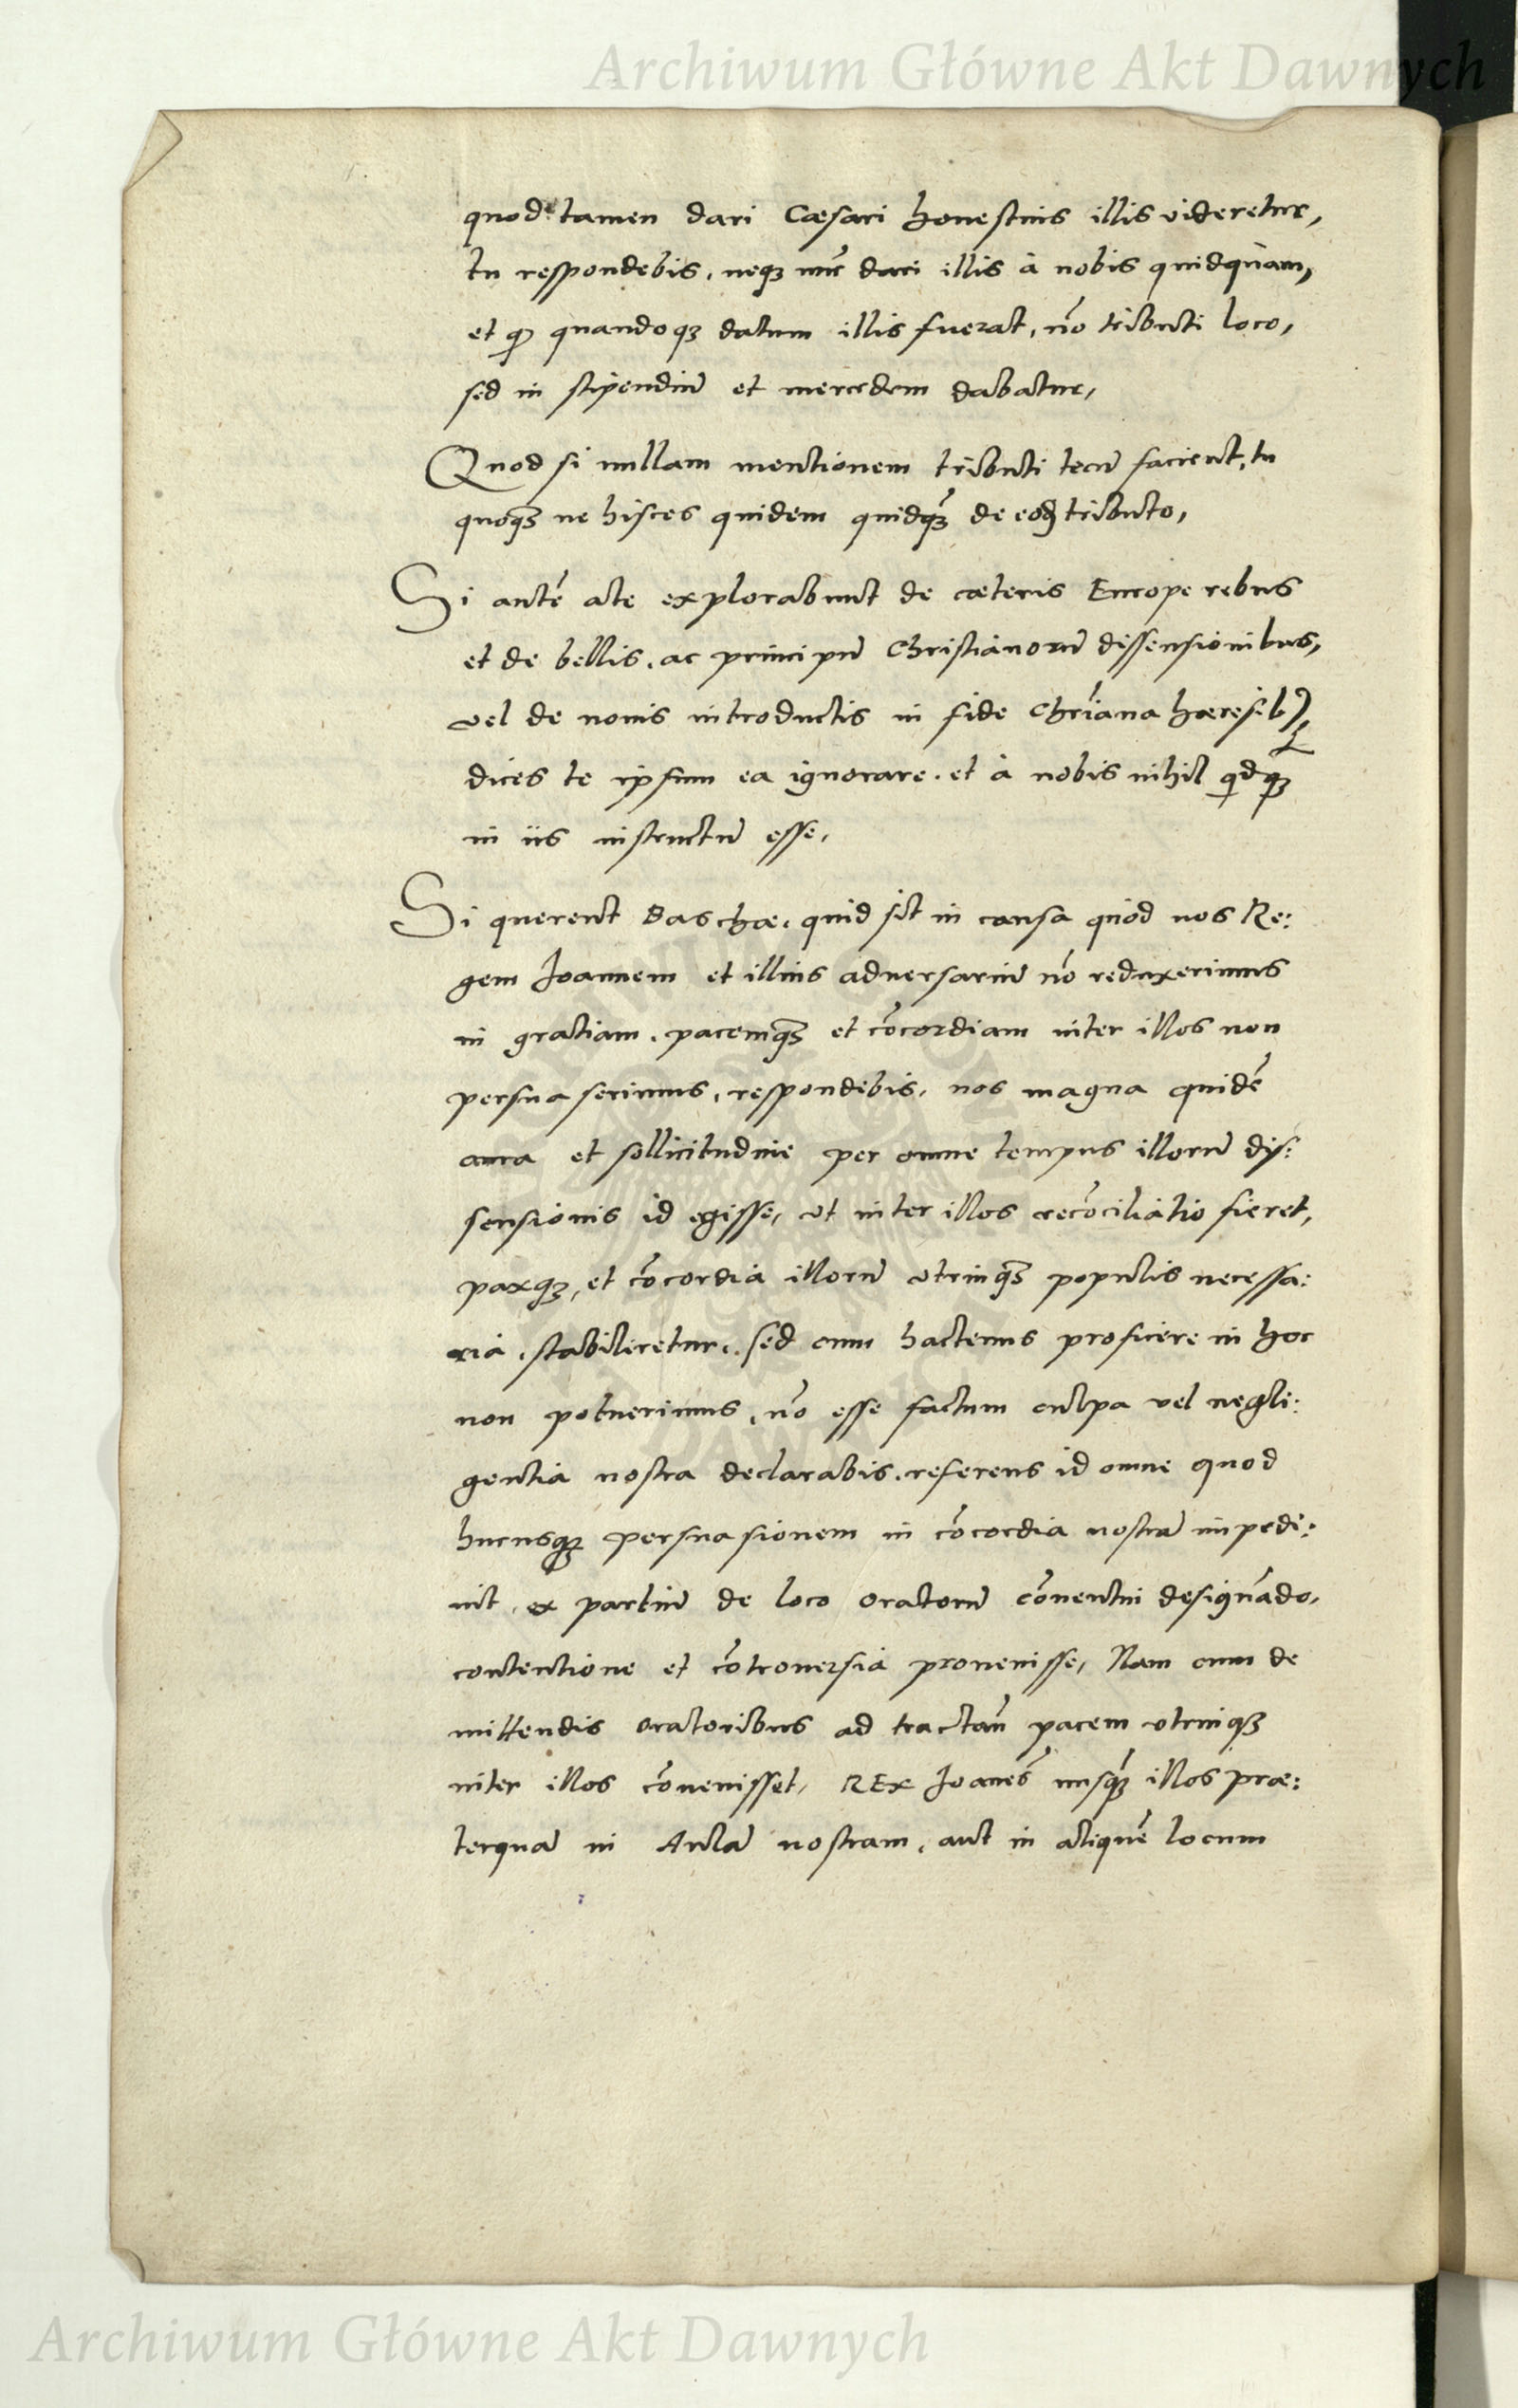 Archiwum Główne Akt Dawnych
quod tamen dari Cæsari honestius illis videretur,
tu respondebis, neqꝫ nũc dari illis à nobis quidquam,
et qď quandoqꝫ datum illis fuerat, nõ tributi loco,
sed in stipendiũ et mercedem dabatur,
Quod si nullam mentionem tributi tecũ facient, tu
quoqꝫ ne hisces quidem quidqꝫ̃ de eod tributo,
Si autẽ a te explorabunt de cæteris Europe rebus
et de bellis, ac principũ Christianorũ dissensionibus,
vel de nouis introductis in fide Chr̃iana hæresib9,
dices te ipsum ea ignorare, et à nobis nihil qidqꝫ̃
in iis instructũ esse,
Si querent Baschæ, quid sit in causa quod nos Re:
gem Joannem et illius aduersariũ nõ reduxerimus
in gratiam, pacemqꝫ et cõcordiam inter illos non
persuaserimus, respondebis, nos magna quidẽ
cura et sollicitudine per omne tempus illorũ dis:
sensionis id egisse, vt inter illos recõciliatio fieret,
paxqꝫ, et cõcordia illorũ vtrinqꝫ populis necessa:
ria, stabiliretur, sed cum hactenus proficere in hoc
non potuerimus, nõ esse factum culpa vel negli:
gentia nostra declarabis, referens id omne quod
hucusqꝫ persuasionem in cõcordia nostrã impedi:
uit, ex partiũ de loco oratorũ cõuentui designãdo,
contentione et cõtrouersia prouenisse, Nam cum de
mittendis oratoribus ad tractañ pacem vtrinqꝫ
inter illos cõuenisset, REx Joanẽs nusqꝫ̃ illos præ:
terquã in Aulã nostram, aut in aliquẽ locum
Archiwum Główne Akt Dawnych